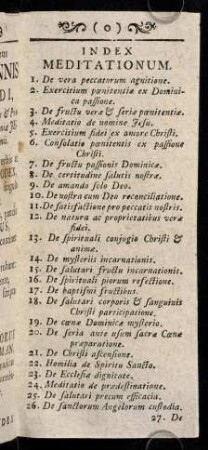 (o)
INDEX
MEDITATIONUM.
1. De vera peccatorum agnitione.
2. Exercitium pœnitentiæ ex Domini-
ca passione.
3. De fructu veræ & seriæ pœnitentiæ.
4. Meditatio de nomine Jesu.
5. Exercitium fidei ex amore Christi.
6. Consolatio pœnitentis ex passione
Christi.
7. De fructu passionis Dominicæ.
8. De certitudine salutis nostræ.
9. De amando solo Deo.
10. De nostra cum Deo reconciliatione.
11. De satisfactione pro peccatis nostris.
12. De natura ac proprietatibus veræ
fidei.
13. De spirituali conjugio Christi &
animæ.
14. De mysteriis incarnationis.
15. De salutari fructu incarnationis.
16. De spirituali piorum refectione.
17. De baptismi fructibus.
18. De salutari corporis & sanguinis
Christi participatione.
19. De cœnæ Dominicæ mysterio.
20. De seria ante usum sacræ Cœnæ
præparatione.
21. De Christi ascensione.
22. Homilia de Spiritu Sancto.
23. De Ecclesiæ dignitate.
24. Meditatio de prædestinatione.
25. De salutari precum efficacia.
26. De sanctorum Angelorum custodia.
27. De